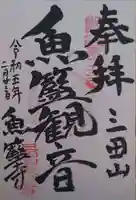 奉拝
三田山
魚籃観音
令和五年
二月廿一日
魚籃寺